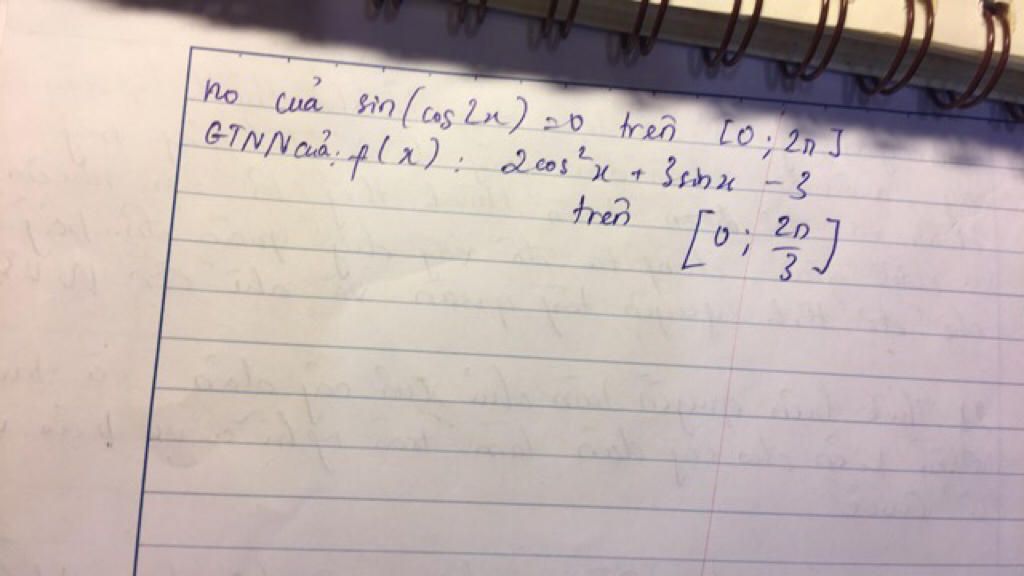 no của sin(cos2x)=0 trên [0; 2π]
GTNN của: f(x): 2cos²x + 3sinx - 3
trên [0; 2π/3]